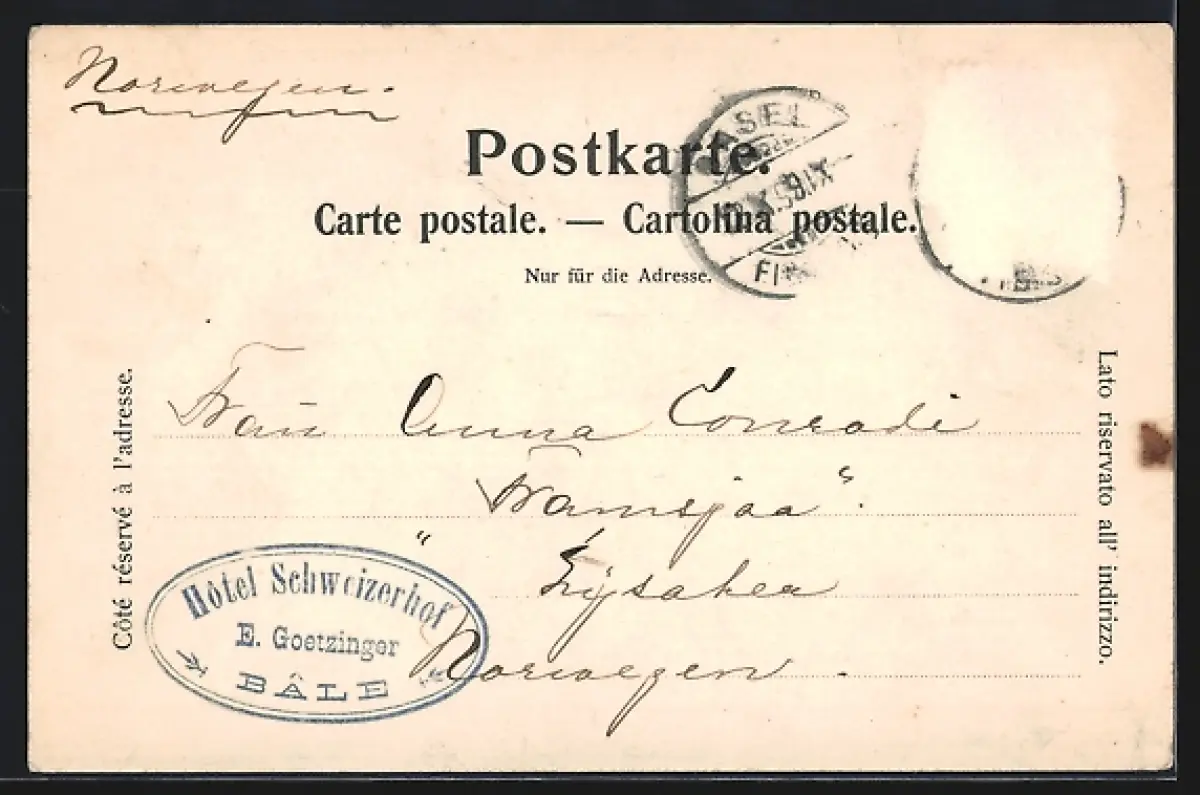 Norwegen.
Postkarte.
Carte postale. — Cartolina postale.
Nur für die Adresse.
BASEL
Côté réservé à l'adresse.
Lato riservato all' indirizzo.
Frau Anna Conradi
"Framsjaa".
Lysaker
Norwegen.
Hôtel Schweizerhof
E. Goetzinger
BÂLE